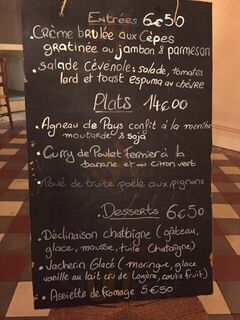 Entrées 6€50
Crème brulée aux Cèpes
gratinée au jambon & parmesan
Salade Cévenole : salade, tomates
lard et toast espuma au chèvre
Plats 14€00
• Agneau de Pays confit à la menthe
moutarde & soja
• Curry de Poulet fermier à la
banane et au citron vert
• Pavé de truite poêlé aux pignons
Desserts 6€50
• Déclinaison chataîgne (gâteau,
glace, mousse, tuile Chataîgne)
• Vacherin Glacé (meringue, glace
vanille au lait cru de Lozère, coulis fruit)
• Assiette de fromage 5€50